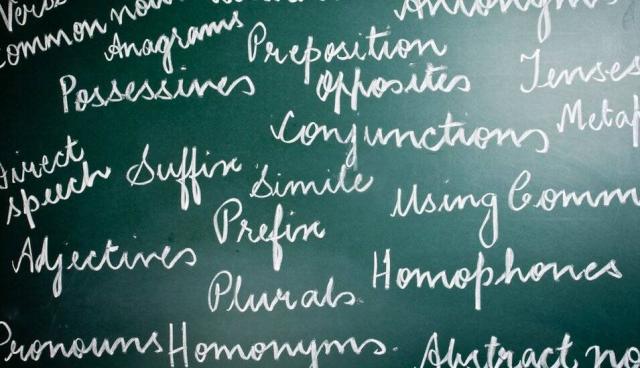 Verbs
Common nou
Anagrams
Preposition
Possessives
Opposites
Tenses
Conjunctions
Metap
Direct
speech
Suffix
Simile
Using Comm
Prefix
Adjectives
Homophones
Plurals
Pronouns
Homonyms
Abstract no